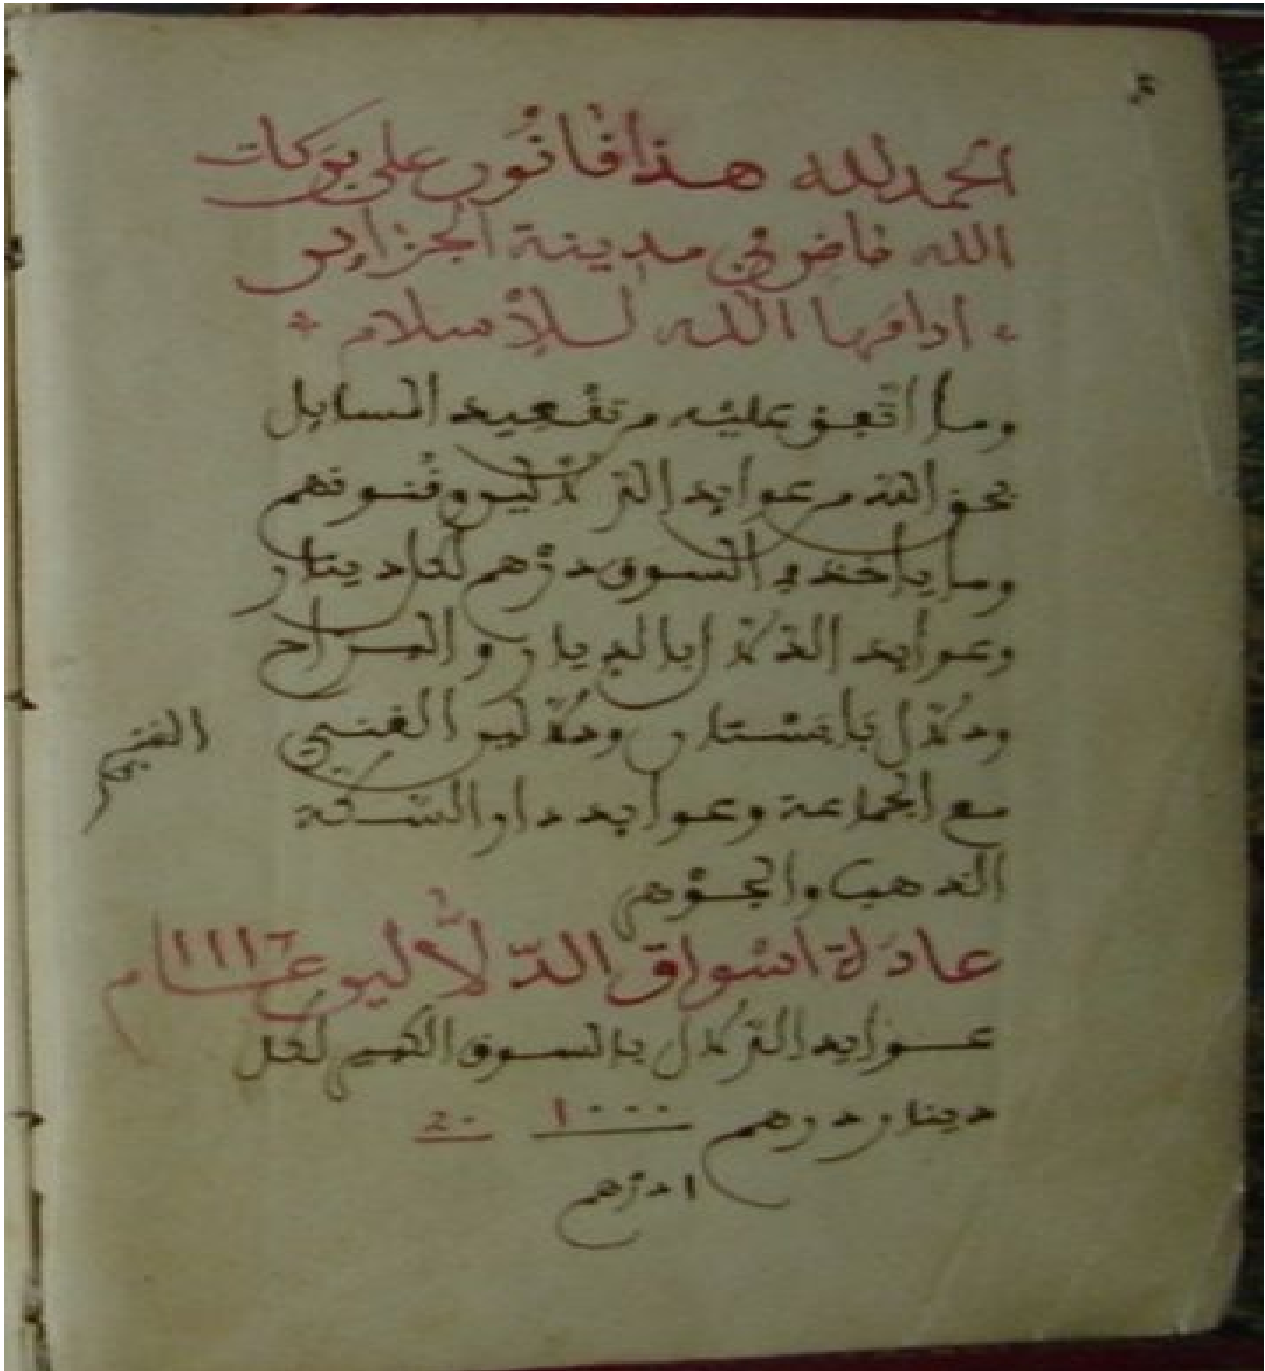 الحمد لله هذا قانون على بركات
الله فاض في مدينة الجزاير
ادامها الله للإسلام
وما اتفق عليه من تقييد المسايل
بحق الله من عوايد الدلالين وقنونهم
وما ياخذ في السوق درهم لكل دينار
وعوايد الدلال بالديار و
ودلال ودلالين الفنيي
الفنيي
مع الجماعة وعوايد دار السكة
الذهب والجوهر
عادة اسواق الدلالين عام ١١١٦
عوايد الدلال بالسوق الكبير لكل
دينار درهم ١٠٠٠ ٢٠
١ درهم